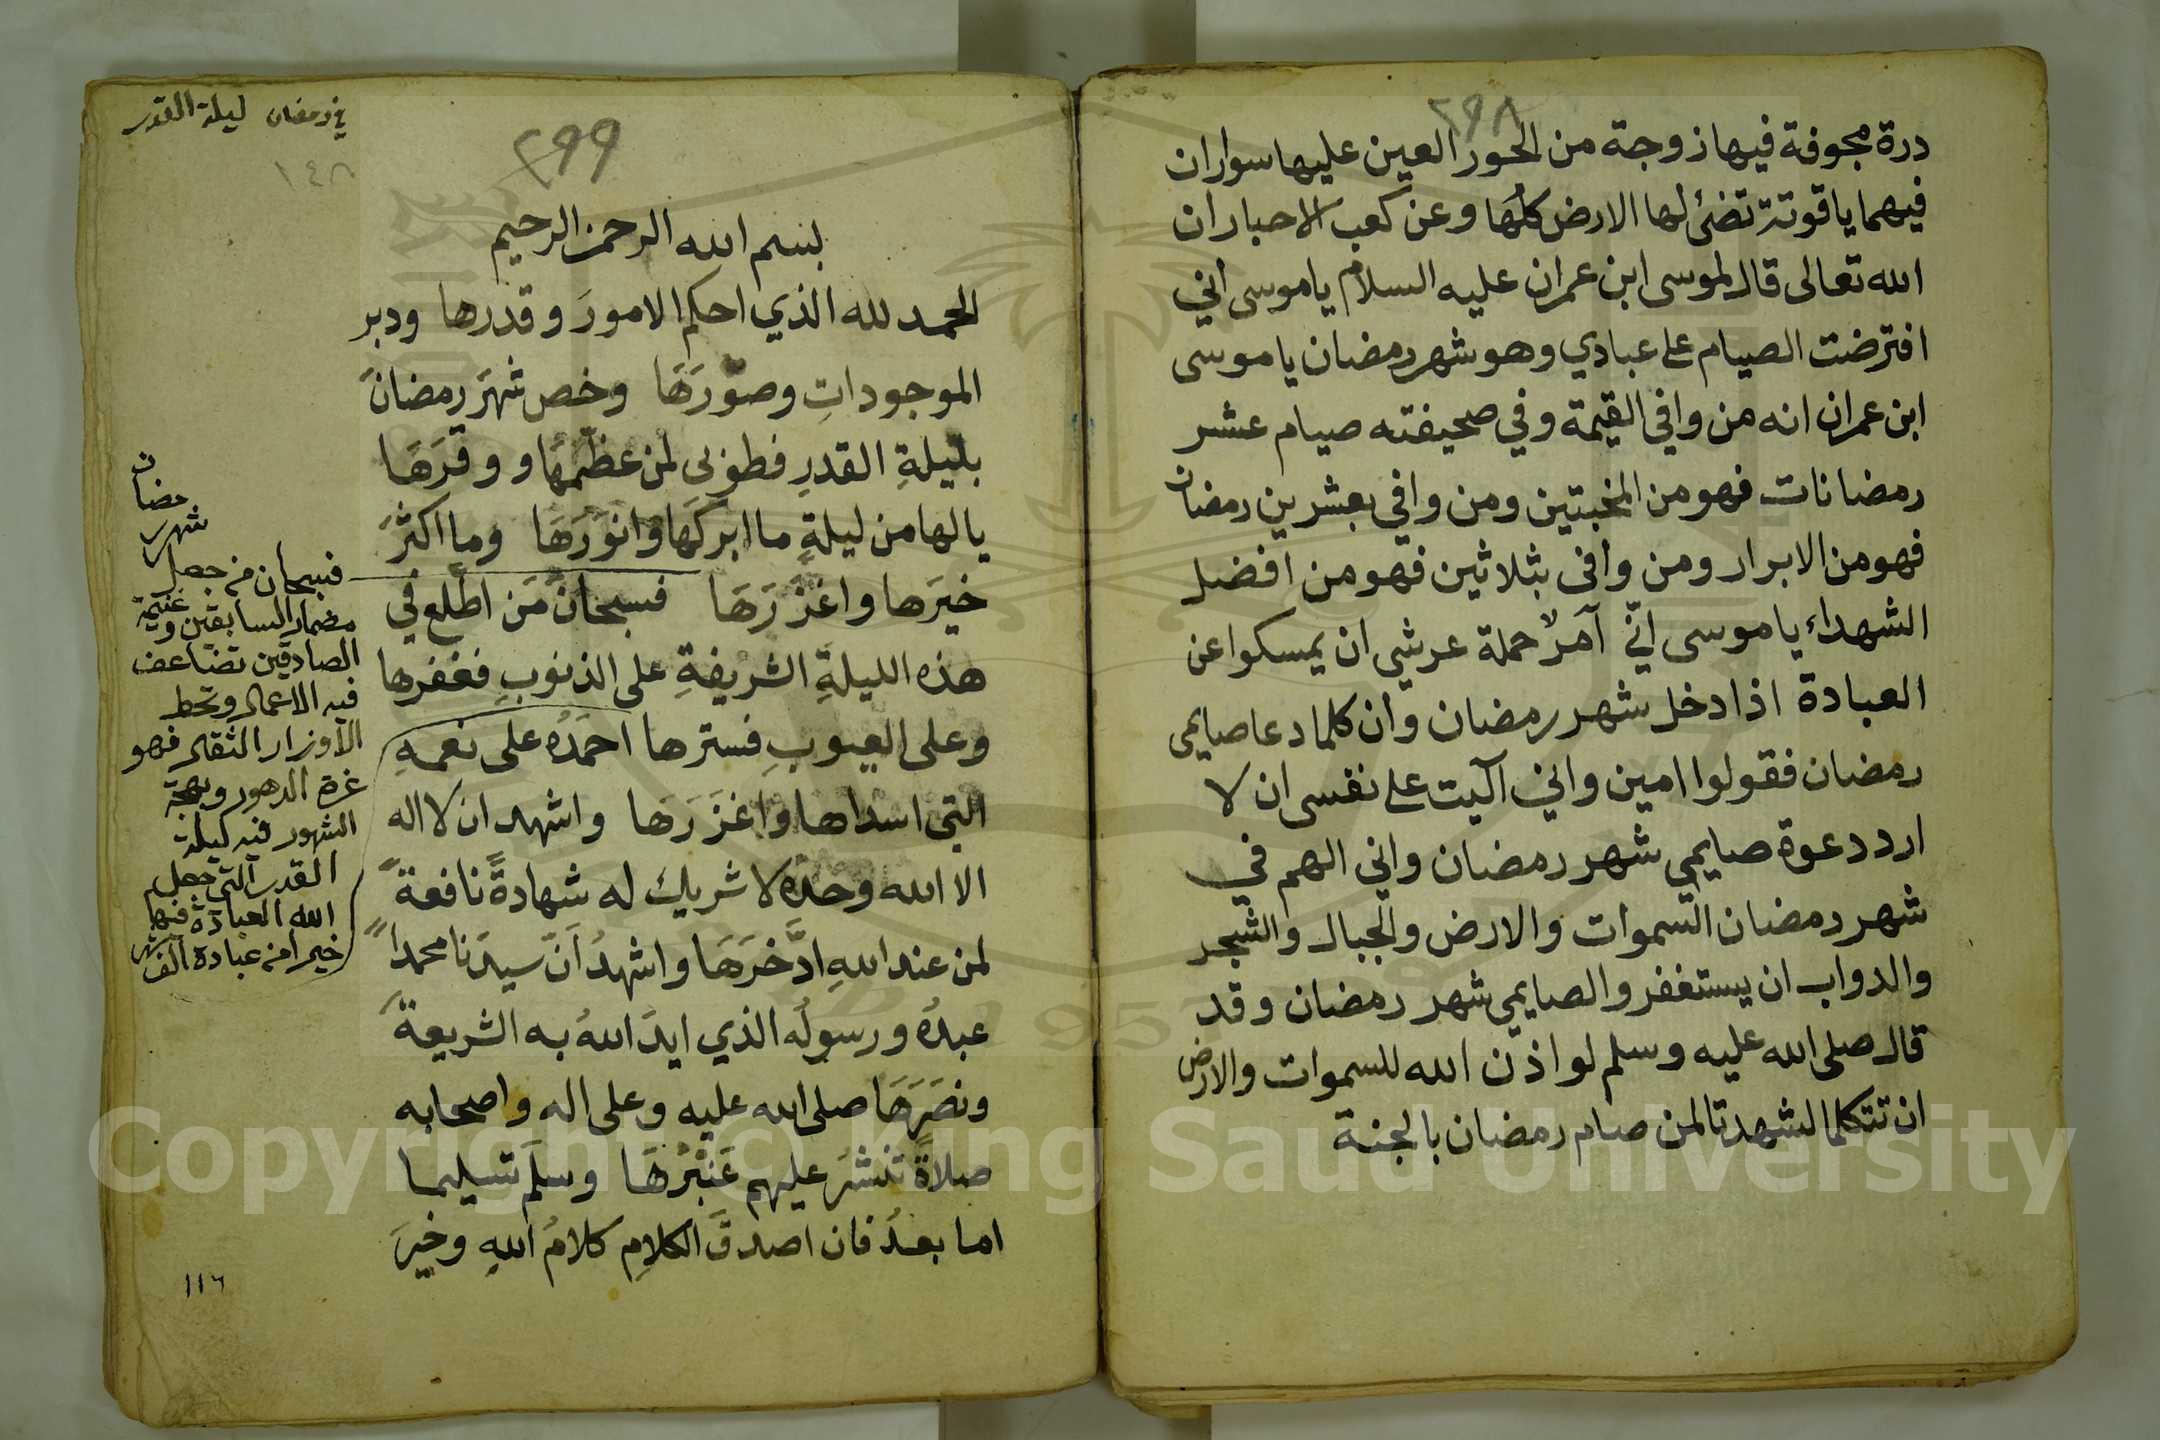 ٢٩٨
درة مجوفة فيها زوجة من الحور العين عليها سواران
فيهما ياقوتة تضئ لها الارض كلها وعن كعب الاحبار ان
الله تعالى قال لموسى ابن عمران عليه السلام يا موسى اني
افترضت الصيام على عبادي وهو شهر رمضان يا موسى
ابن عمران انه من وافي القيمة وفي صحيفته صيام عشر
رمضانات فهو من المخبتين ومن وافي بعشرين رمضان
فهو من الابرار ومن وافى بثلاثين فهو من افضل
الشهداء يا موسى اني آمر حملة عرشي ان يمسكوا عن
العبادة اذا دخل شهر رمضان وان كلما دعا صايمي
رمضان فقولوا امين واني آليت على نفسى ان لا
ارد دعوة صايمي شهر رمضان واني الهم في
شهر رمضان السموات والارض والجبال والشجر
والدواب ان يستغفروا لصايمي شهر رمضان وقد
قال صلى الله عليه وسلم لو اذن الله للسموات والارض
ان تتكلما لشهدتا لمن صام رمضان بالجنة
في رمضان ليلة القدر
٢٩٩
١٤٨
بسم الله الرحمن الرحيم
الحمد لله الذي احكم الامورَ وقدرها ودبر
الموجوداتِ وصوّرَهَا وخص شهرَ رمضانَ
بليلةِ القدرِ فطوبى لمن عظّمهَا ووقرَهَا
يا لها من ليلةٍ ما ابركَها وَانوَرَهَا وما اكثرَ
خيرَها واغزَرَهَا فسبحانَ مَن اطّلع في
هذه الليلةِ الشريفةِ على الذنوبِ فغفرها
وعلى العيوبِ فسترها احمَدُه على نعمهِ
التي اسداها واغزَرَها واشهد ان لا اله
الا الله وحدُه لا شريك له شهادةً نافعةً
لمن عند اللهِ ادَّخرَهَا واشهدُ اَنّ سيدَنا محمداً
عبدُه ورسولُه الذي ايدَ اللهُ به الشريعةَ
ونصَرَهَا صلى الله عليه وعلى اله واصحابه
صلاةً تنشرَ عليهم عَنبْرُهَا وسلَم تسليما
اما بعدُ فان اصدقَ الكلامِ كلامُ اللهِ وخيرَ
شهر رمضان
فسبحان من جعل
مضمار السابقين وغنيمة
الصادقين تضاعف
فيه الاعمال وتحط
الأوزار الثقال فهو
غرة الدهور وبهجة
الشهور فيه ليلة
القدر التي جعل
الله العبادة فيها
خيرا من عبادة الف شهر
١١٦
Copyright © King Saud University